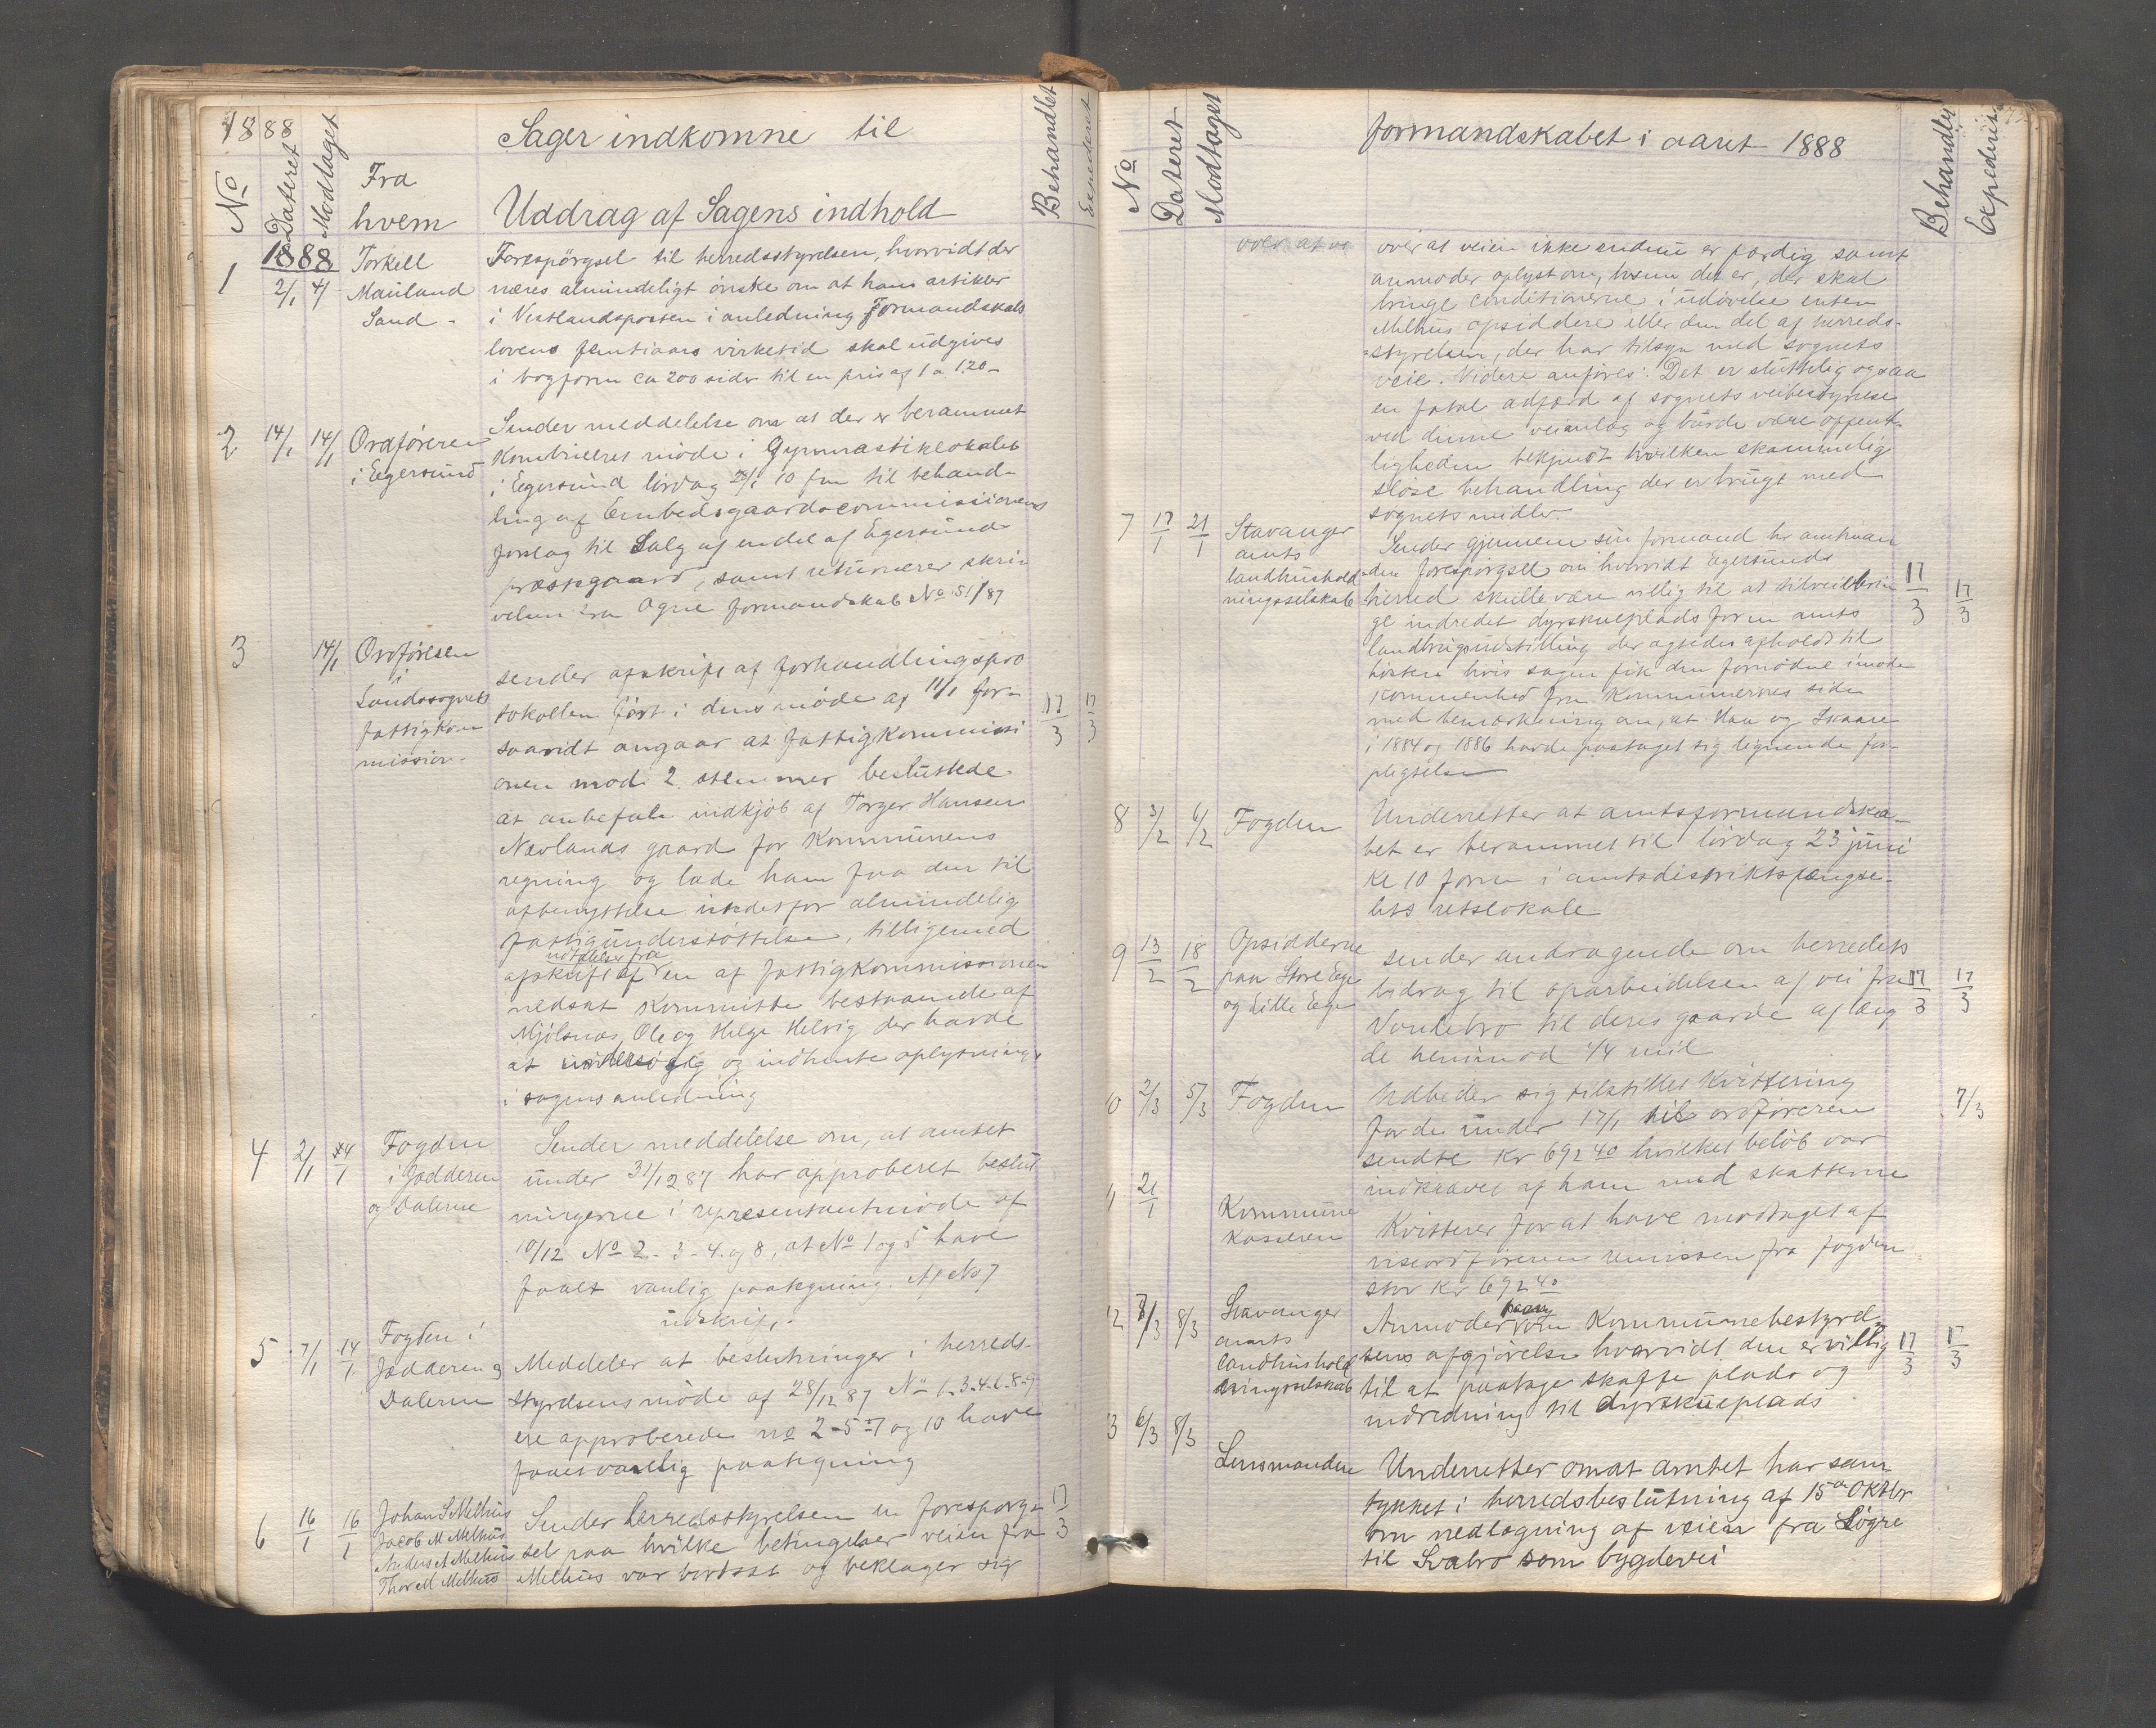 1888
Sager indkomne til
No Dateret Modtaget Fra hvem Uddrag af Sagens indhold Behandlet Expederet
1888
1 2/1 4/1 Torkell Mauland Sand -
Forespörgsel til herredsstyrelsen, hvorvidt der
næres almindeligt önske om at hans artikler
i Vestlandsposten i anledning Formandskabs
lovens femtiaars virketid skal udgives
i bogform ca 200 sider til en pris af 1 a 1.20 -
2 14/1 14/1 Ordföreren i Egersund
Sender meddelelse om at der er berammet
Kombineret möde i Gymnastiklokalet
i Egersund lördag 28/1 10 fm til behand-
ling af Embedsgaardscommissionens
forslag til Salg af endel af Egersund
præstegaard, samt returnerer skri-
velsen fra Ogne formandskab No 51/87
3 14/1 Ordföreren i Landssognets fattigkommission -
sender afskrift af forhandlingspro
tokollen fört i dens möde af 11/1 for-
saavidt angaar at fattigkommissi
onen mod 2 stemmer besluttede
at anbefale indkjöb af Torger Hansen
Nævlands gaard for Kommunens
regning og lade ham faa den til
afbenyttelse istedetfor almindelig
fattigunderstöttelse, tilligemed
afskrift af udtalelse fra en af fattigkommissionen
nedsat Kommitte bestaaende af
Mjölsnæs, Ole og Helge Helvig der havde
at undersöge og indhente oplysninger
i sagens anledning
17/3 17/3
4 2/1 14/1 Fogden i Jædderen og Dalerne
Sender meddelelse om, at amtet
under 31/12 87 har approberet beslut
ningerne i representantmöde af
10/12 No 2 - 3 - 4 - og 8, at No 1 og 5 have
faaet vanlig paategning. Af No 7
udskrift -
5 7/1 14/1 Fogden i Jædderen og Dalerne
Meddeler at beslutninger i herreds-
styrelsens möde af 28/12 87 No 1-3-4-6-8-9
ere approberede no 2-5-7 og 10 have
faaet vanlig paategning
6 16/1 16/1 Johan S Melhus Jacob M Melhus Anders A Melhus Thor M Melhus
Sender herredsstyrelsen en forespörg-
sel paa hvilke betingelser veien fra
Melhus var bortsat og beklager sig
17/3
formandskabet i aaret 1888
No Dateret Modtaget Behandlet Expederet
over at ve
over at veien ikke endnu er færdig samt
anmoder oplyst om, hvem det er, der skal
bringe conditionerne i udövelse enten
Melhus opsiddere eller den del af herreds-
styrelsen, der har tilsyn med sognets
veie. Videre anföres: Det er sluttelig ogsaa
en fatal adfærd af sognets veibestyrelse
ved denne veianlæg og burde være offent-
ligheden bekjendt hvilken skammelig
slöse behandling der er brugt med
sognets midler.
7 17/1 21/1 Stavanger amts landhusholdningsselskab
Sender gjennem sin formand hr amtman
den forespörgsel om hvorvidt Egersunds
herred skulle være villig til at tilveiebrin
ge indredet dyrskueplads for en amts
landbrugsudstilling der agtedes afholdt til
hösten hvis sagen fik den fornödne imöde
kommenhed fra Kommunernes side
med bemærkning om, at Haa og Skaare
i 1884 og 1886 havde paataget sig lignende for-
pligtelser
17/3 17/3
8 3/2 6/2 Fogden
Underretter at amtsformandska-
bet er berammet til lördag 23 juni
Kl 10 form i amtsdistriktsfængse-
lets retslokale
9 13/2 18/2 Opsidderne paa Store Ege og Lille Ege
sender andragende om herredets
bidrag til oparbeidelsen af vei fra
til deres gaarde af læng
de henimod 1/4 mil
17/3 17/3
10 2/3 5/3 Fogden
Udbeder sig tilstillet Kvittering
for de under 17/1 til ordföreren
sendte Kr 692 40 hvilket belöb var
indkrævet af ham med skatterne
7/3
11 21/1 Kommune Kasseren
Kvitterer for at have modtaget af
viseordföreren remissen fra fogden
stor Kr 692 40
12 7/3 8/3 Stavanger amts landhusholdningsselskab
Anmoder paany om Kommunebestyrel-
sens afgjörelse hvorvidt den er villig
til at paatage skaffe plads og
indredning til dyrskueplads
17/3 17/3
13 6/3 8/3 Lensmanden
Underretter om at amtet har sam
tykket i herredsbeslutning af 15de Oktbr
om nedlægning af veien fra Lögre
til Svabro som bygdevei